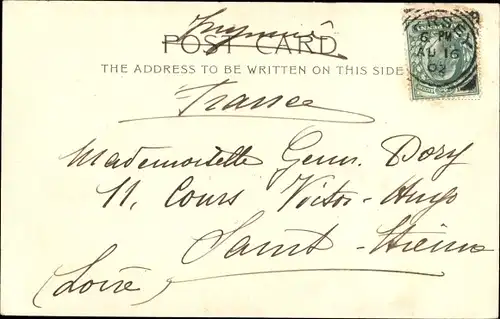 Imprimé
POST CARD.
THE ADDRESS TO BE WRITTEN ON THIS SIDE
JERSEY
8 PM
AU 16
03
France
Mademoiselle Genev. Dory
11, Cours Victor-Hugo
Saint-Etienne
(Loire)